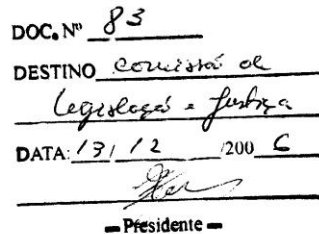 DOC. Nº 83
DESTINO Comissão de
Legislação e Justiça
DATA: 13 / 12 /200 6
Presidente